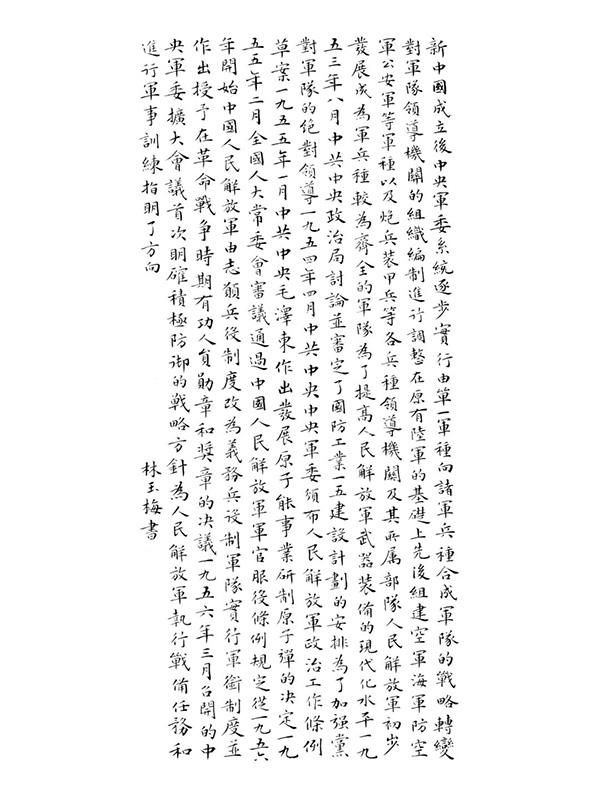 新中國成立後中央軍委系統逐步實行由單一軍種向諸軍兵種合成軍隊的戰略轉變
對軍隊領導機關的組織編制進行調整在原有陸軍的基礎上先後組建空軍海軍防空
軍公安軍等軍種以及炮兵装甲兵等各兵種領導機關及其所属部隊人民解放軍初步
發展成為軍兵種較為齊全的軍隊為了提高人民解放軍武器装備的現代化水平一九
五三年八月中共中央政治局討論並審定了國防工業一五建設計劃的安排為了加强黨
對軍隊的绝對領導一九五四年四月中共中央中央軍委颁布人民解放軍政治工作條例
草案一九五五年一月中共中央毛澤東作出發展原子能事業研制原子彈的決定一九
五五年二月全國人大常委會審議通過中國人民解放軍軍官服役條例規定從一九五六
年開始中國人民解放軍由志願兵役制度改為義務兵役制軍隊實行軍銜制度並
作出授予在革命戰争時期有功人員勛章和奖章的决議一九五六年三月召開的中
央軍委擴大會議首次明確積極防御的戰略方針為人民解放軍執行戰備任務和
進行軍事訓練指明了方向
林玉梅書